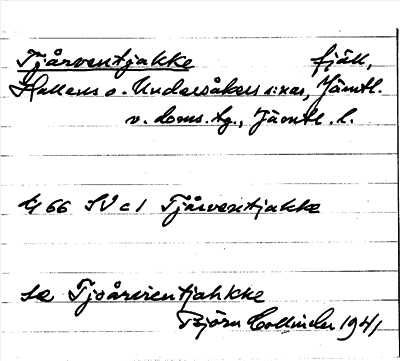 Tjårventjakke fjäll,
Kallens o. Undersåkers s:nar, Jämtl.
v. doms. tg., Jämtl. l.
Gf 66 SV c 1 Tjårventjakke
se Tjoårvientjahkke
Björn Collinder 1941